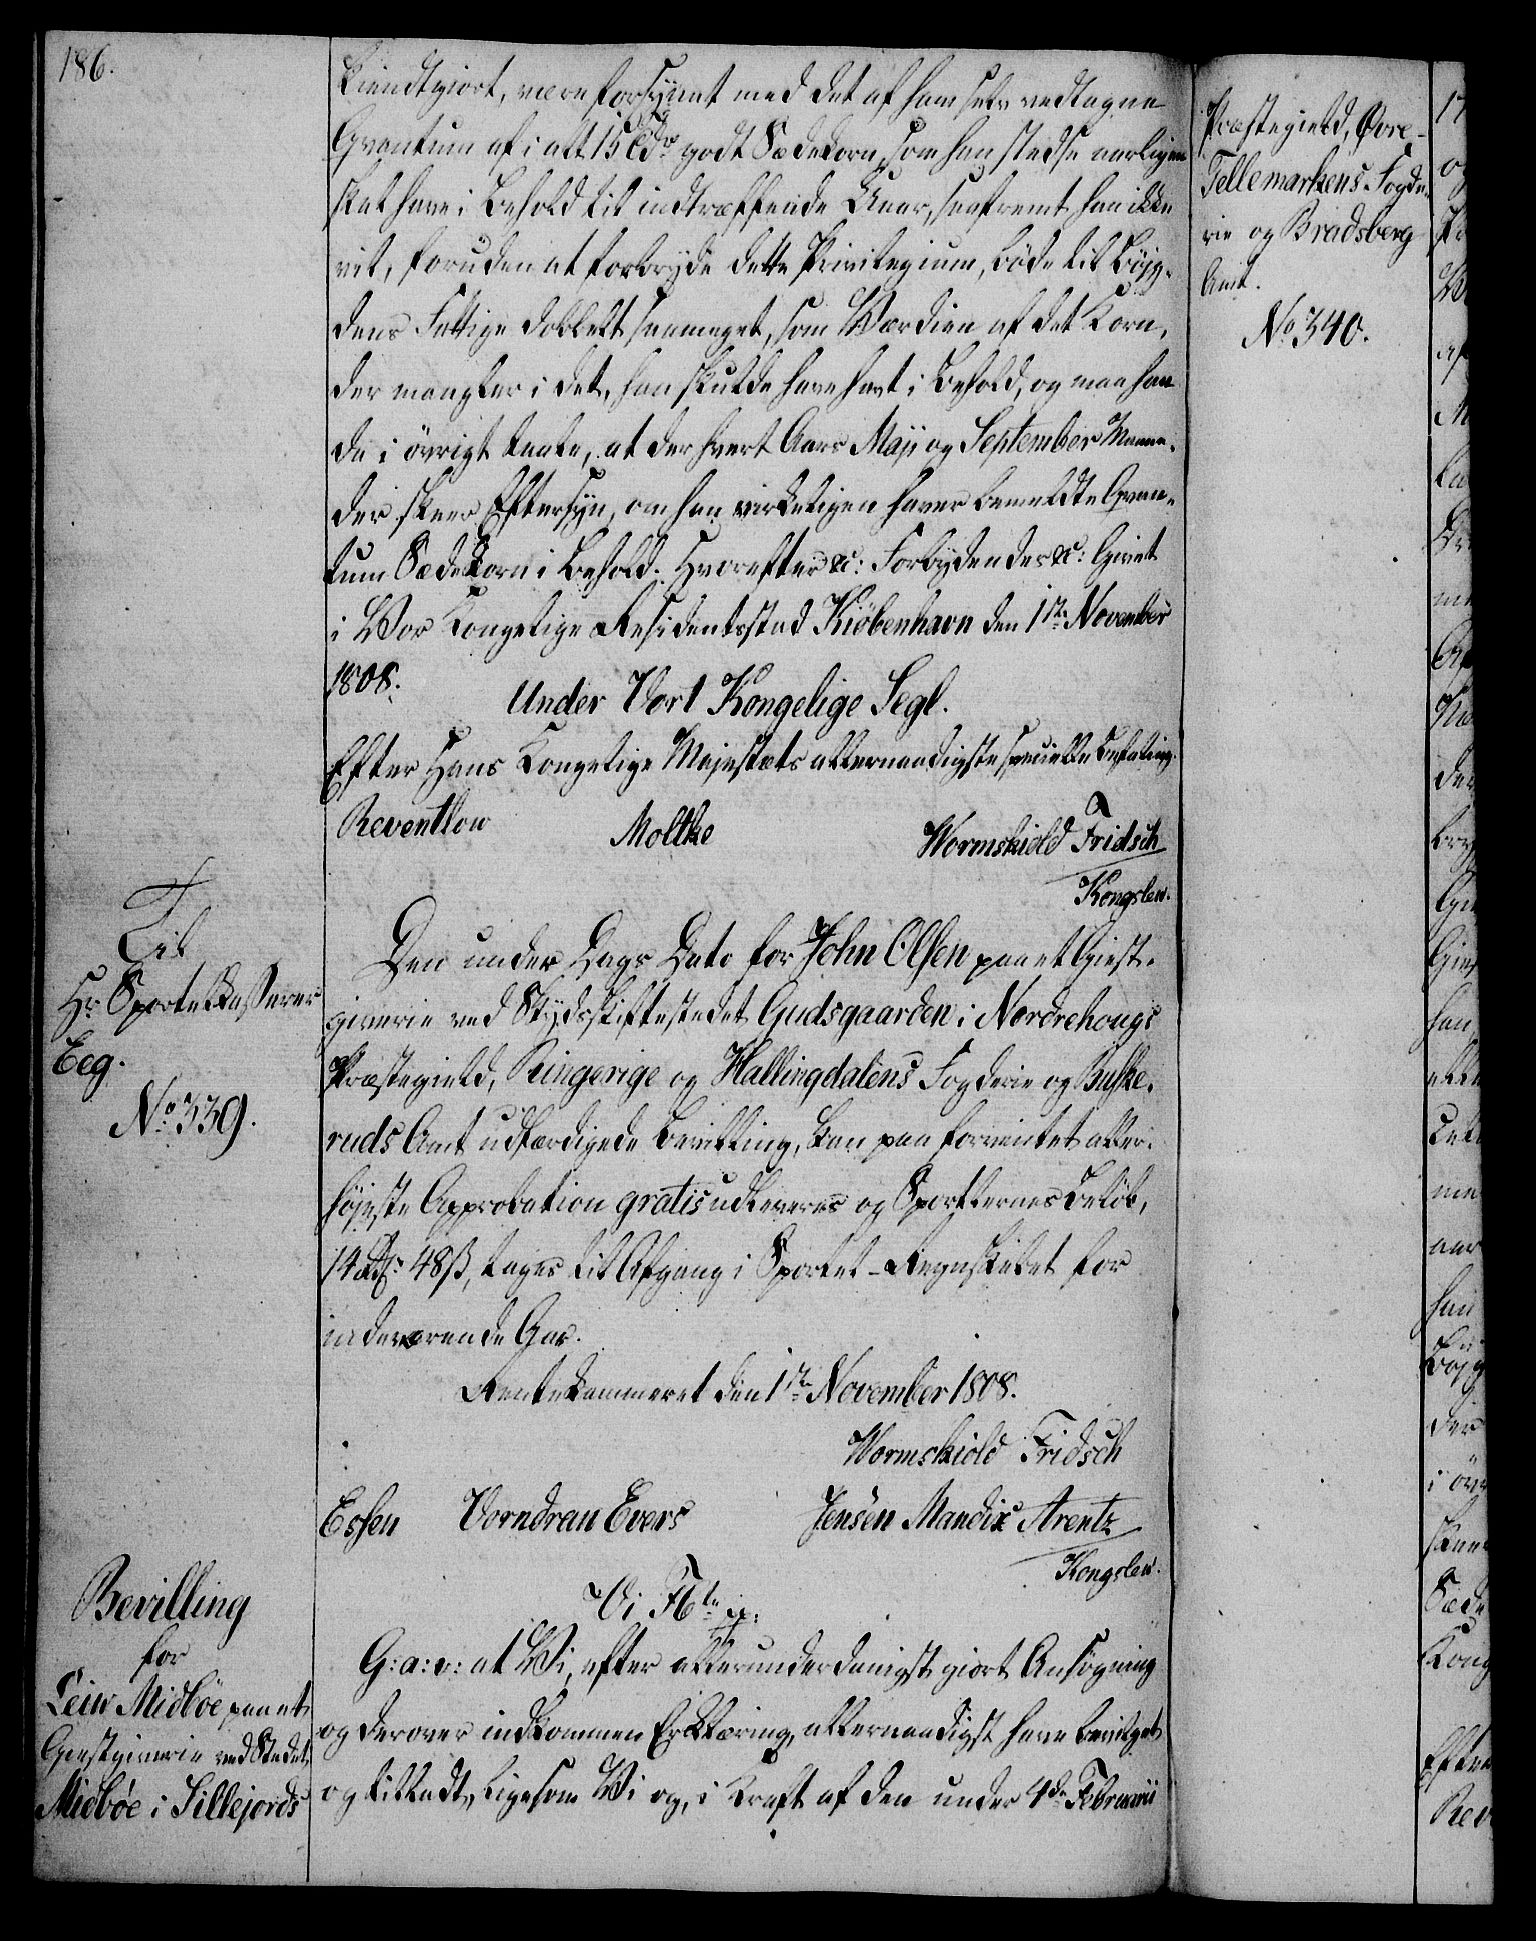 186.
kiendtgiort, være forsynet med det af ham selv vedtagne
Qvantum af i alt 15 Tdr godt Sædekorn, som han stedse aarligen
skal have i Behold til indtræffende Uaar, saafremt han ikke
vil, foruden at forbryde dette Privilegium, bøde til Bÿg-
dens Fattige dobbelt saameget, som Værdien af det Korn,
der mangler i det, han skulde have havt i Behold, og maa han
da i øvrigt taale, at der hvert Aars Maji og September Maane-
der skeer Eftersyn, om han virkeligen haver bemeldte Qvan-
tum Sædekorn i Behold. Hvorefter &c: Forbydendes &c: Givet
i Vor Kongelige Residentsstad Kiöbenhavn den 1ste November
1808.
Under Vort Kongelige Segl.
Efter Hans Kongelige Majestæts allernaadigste specielle Befaling.
Reventlow Moltke Wormskiold Fridsch
Kongslew.
Til
Hr Sportelkasserer
Eeg.
No 339.
Den under Dags Dato for John Olsen paa et Giest-
giverie ved Skydsskiftestedet Gudsgaarden i Nordrehougs
Præstegield, Ringerige og Hallingdalens Fogderie og Buske-
ruds Amt udfærdigede Bevilling, kan paa forventet aller-
høyeste Approbation gratis udleveres og Sportlernes Beløb,
14 Rdr 48 ß, tages til Afgang i Sportel-Regnskabet for
indeværende Aar.
Rentekammeret den 1ste November 1808.
Wormskiold Fridsch
Essen Vorndran Evers Jensen Mandix Arentz
Kongslew.
Bevilling
for
Leiw Midböe paa et
Giestgiverie ved Stedet
Midböe i Sillejords
Vi F 6te
G: a: v: at Vi, efter allerunderdanigst giort Ansøgning
og derover indkommen Erklæring, allernaadigst have bevilget
og tilladt, ligesom Vi og, i Kraft af den under 4de Februarii
Præstegield, Øvre-
Tellemarkens Fogde-
rie og Bradsberg
Amt.
No 340.